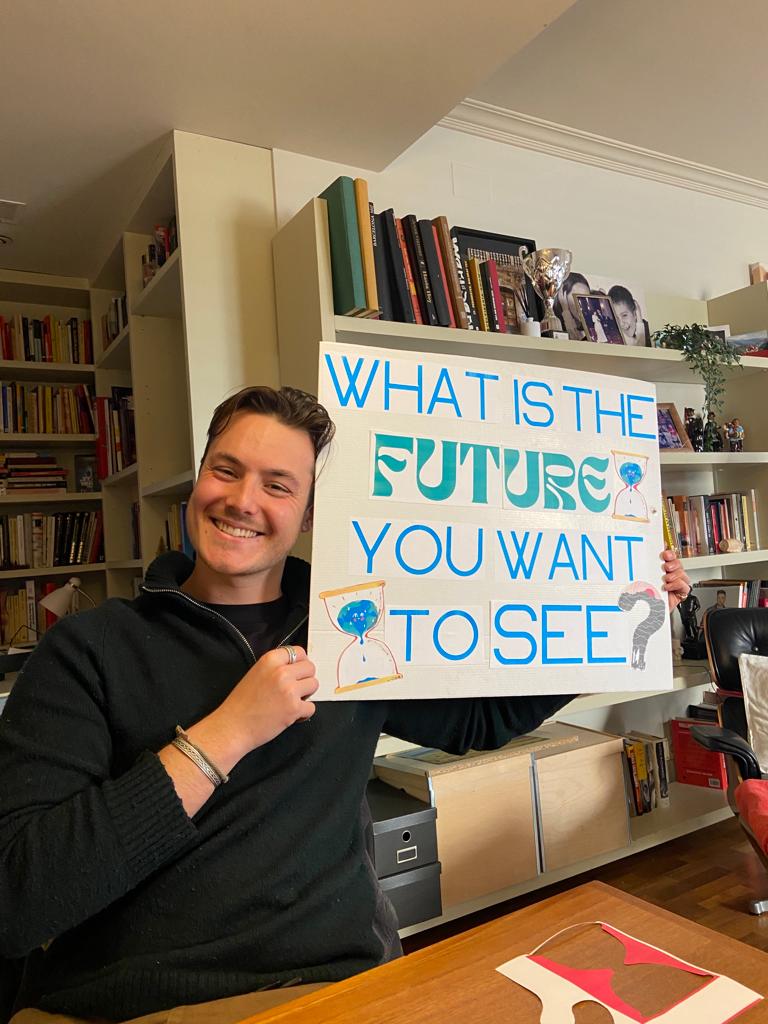 WHAT IS THE
FUTURE
YOU WANT
TO SEE?